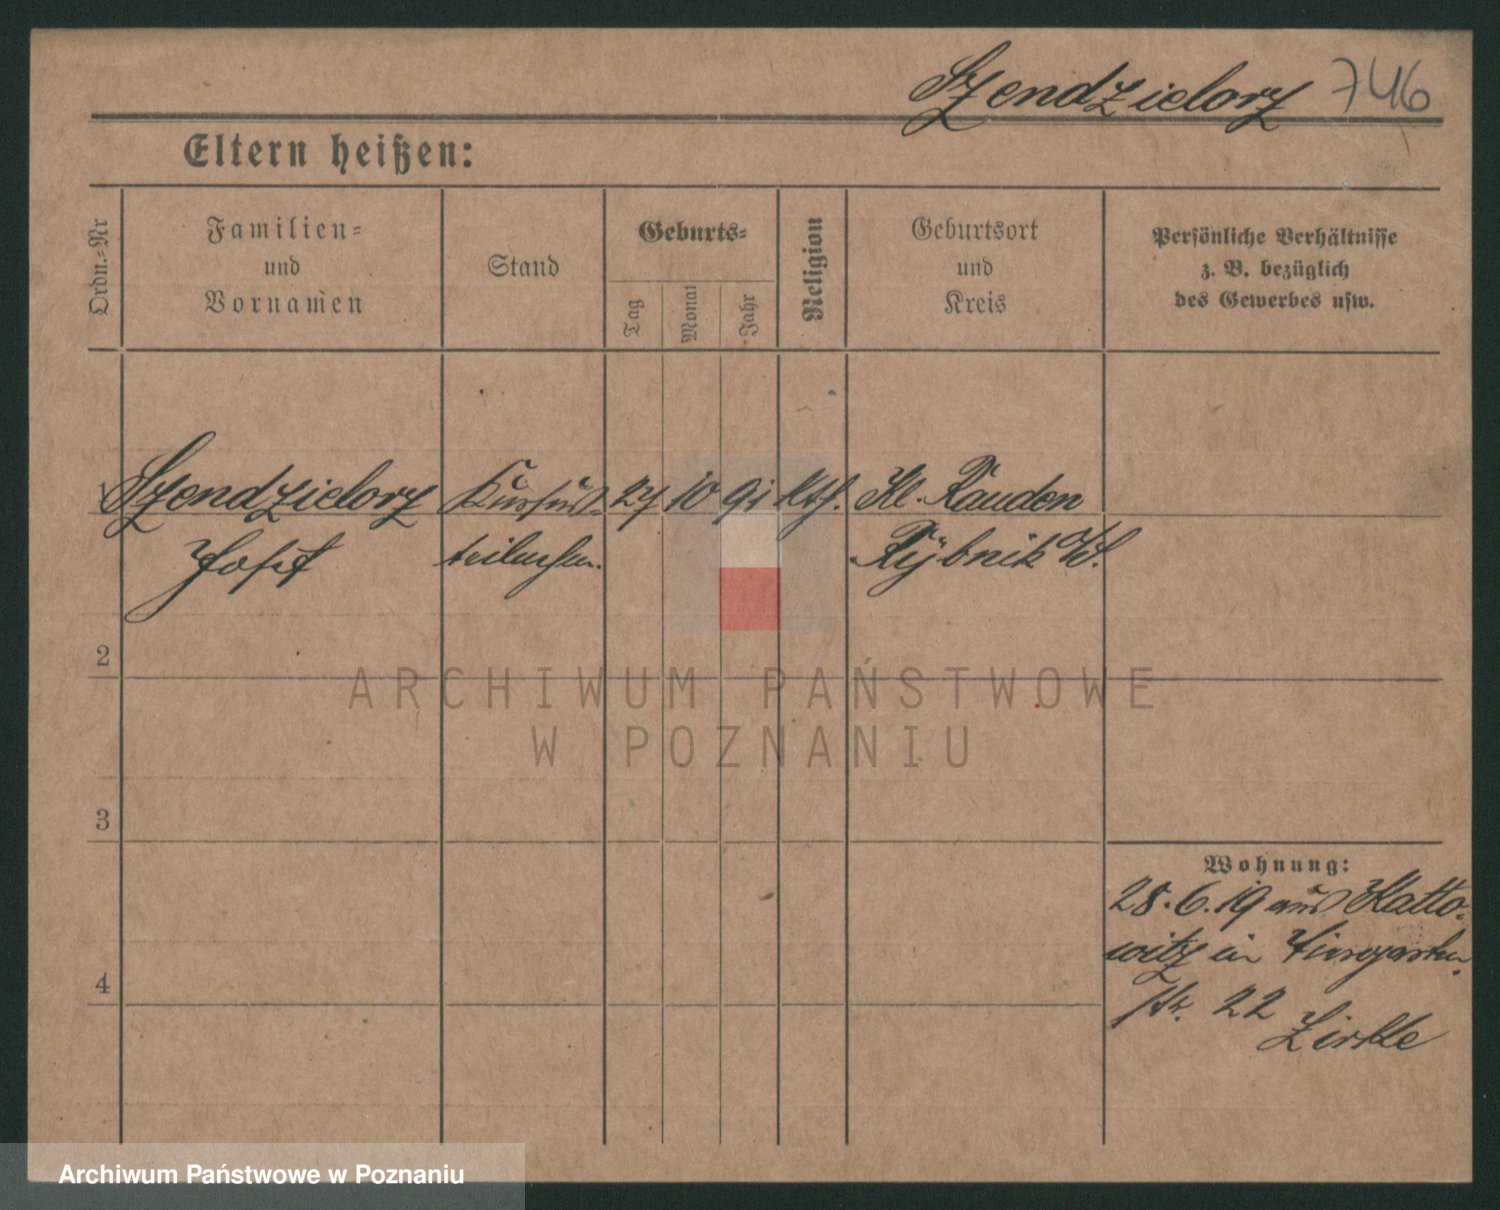 Szendzielorz 746
Eltern heißen:
Ordn.-Nr
Familien-
und
Vornamen
Stand
Geburts-
Tag
Monat
Jahr
Religion
Geburtsort
und
Kreis
Persönliche Verhältnisse
z. B. bezüglich
des Gewerbes usw.
1 Szendzielorz 27 10 91 kth. Kl. Rauden
Josef Rybnik
2
ARCHIWUM PAŃSTWOWE
W POZNANIU
3
4
Wohnung:
28.6.19 aus Katto-
witz in Tiergarten-
str. 22
Zirkle
Archiwum Państwowe w Poznaniu